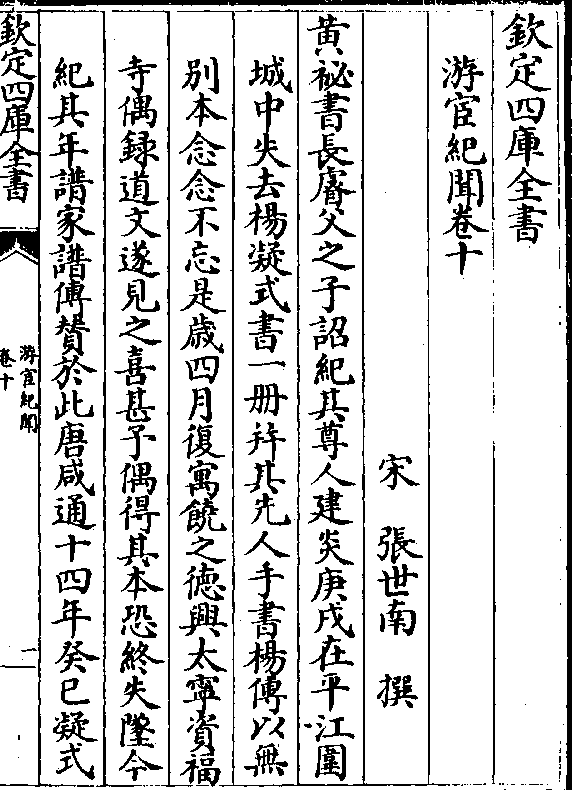 欽定四庫全書
游宦紀聞卷十
宋　張世南　撰
黃祕書長睿父之子詔紀其尊人建炎庚戌在平江圍
城中失去楊凝式書一册幷其先人手書楊傳以無
別本念念不忘是歲四月復寓饒之德興太寧資福
寺偶録道文遂見之喜甚予偶得其本恐終失墜今
紀其年譜家譜傳贊於此唐咸通十四年癸巳凝式
欽定四庫全書
游宦紀聞
卷十
一